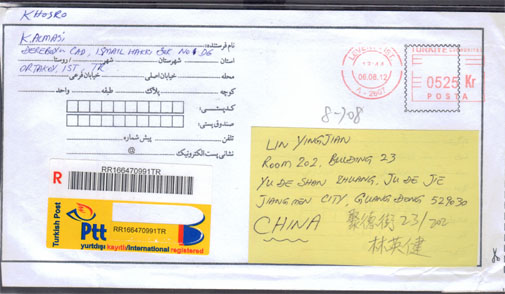 KHOSRO
K.ALMASI
DEREBOYU CAD, ISMAIL HAKKI SOK NO 1 D6
ORTAKOY, IST, TR
نام فرستنده:
استان شهرستان شهر / روستا
محله خیابان اصلی خیابان فرعی
کوچه پلاک طبقه واحد
کدپستی:
صندوق پستی:
تلفن پیش شماره
نشانی پست الکترونیک @
LEVENT-IST.
08.08.12
TÜRKİYE CUMHURİYETİ
0525 Kr
POSTA
R
RR166470991TR
Turkish Post
Ptt
RR166470991TR
yurtdışı kayıtlı/international registered
LIN YINGJIAN
ROOM 202, BUILDING 23
YU DE SHAN ZHUANG, JU DE JIE
JIANGMEN CITY, GUANGDONG 529030
CHINA
聚德街 23/202
林英健